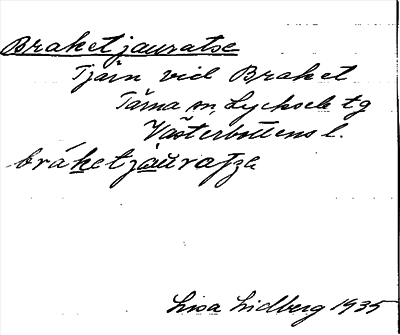 Braketjauratse
Tjärn vid Braket
Tärna sn, Lycksele tg
Västerbottens l.
bráketjàu̯ratze
Lisa Lidberg 1935